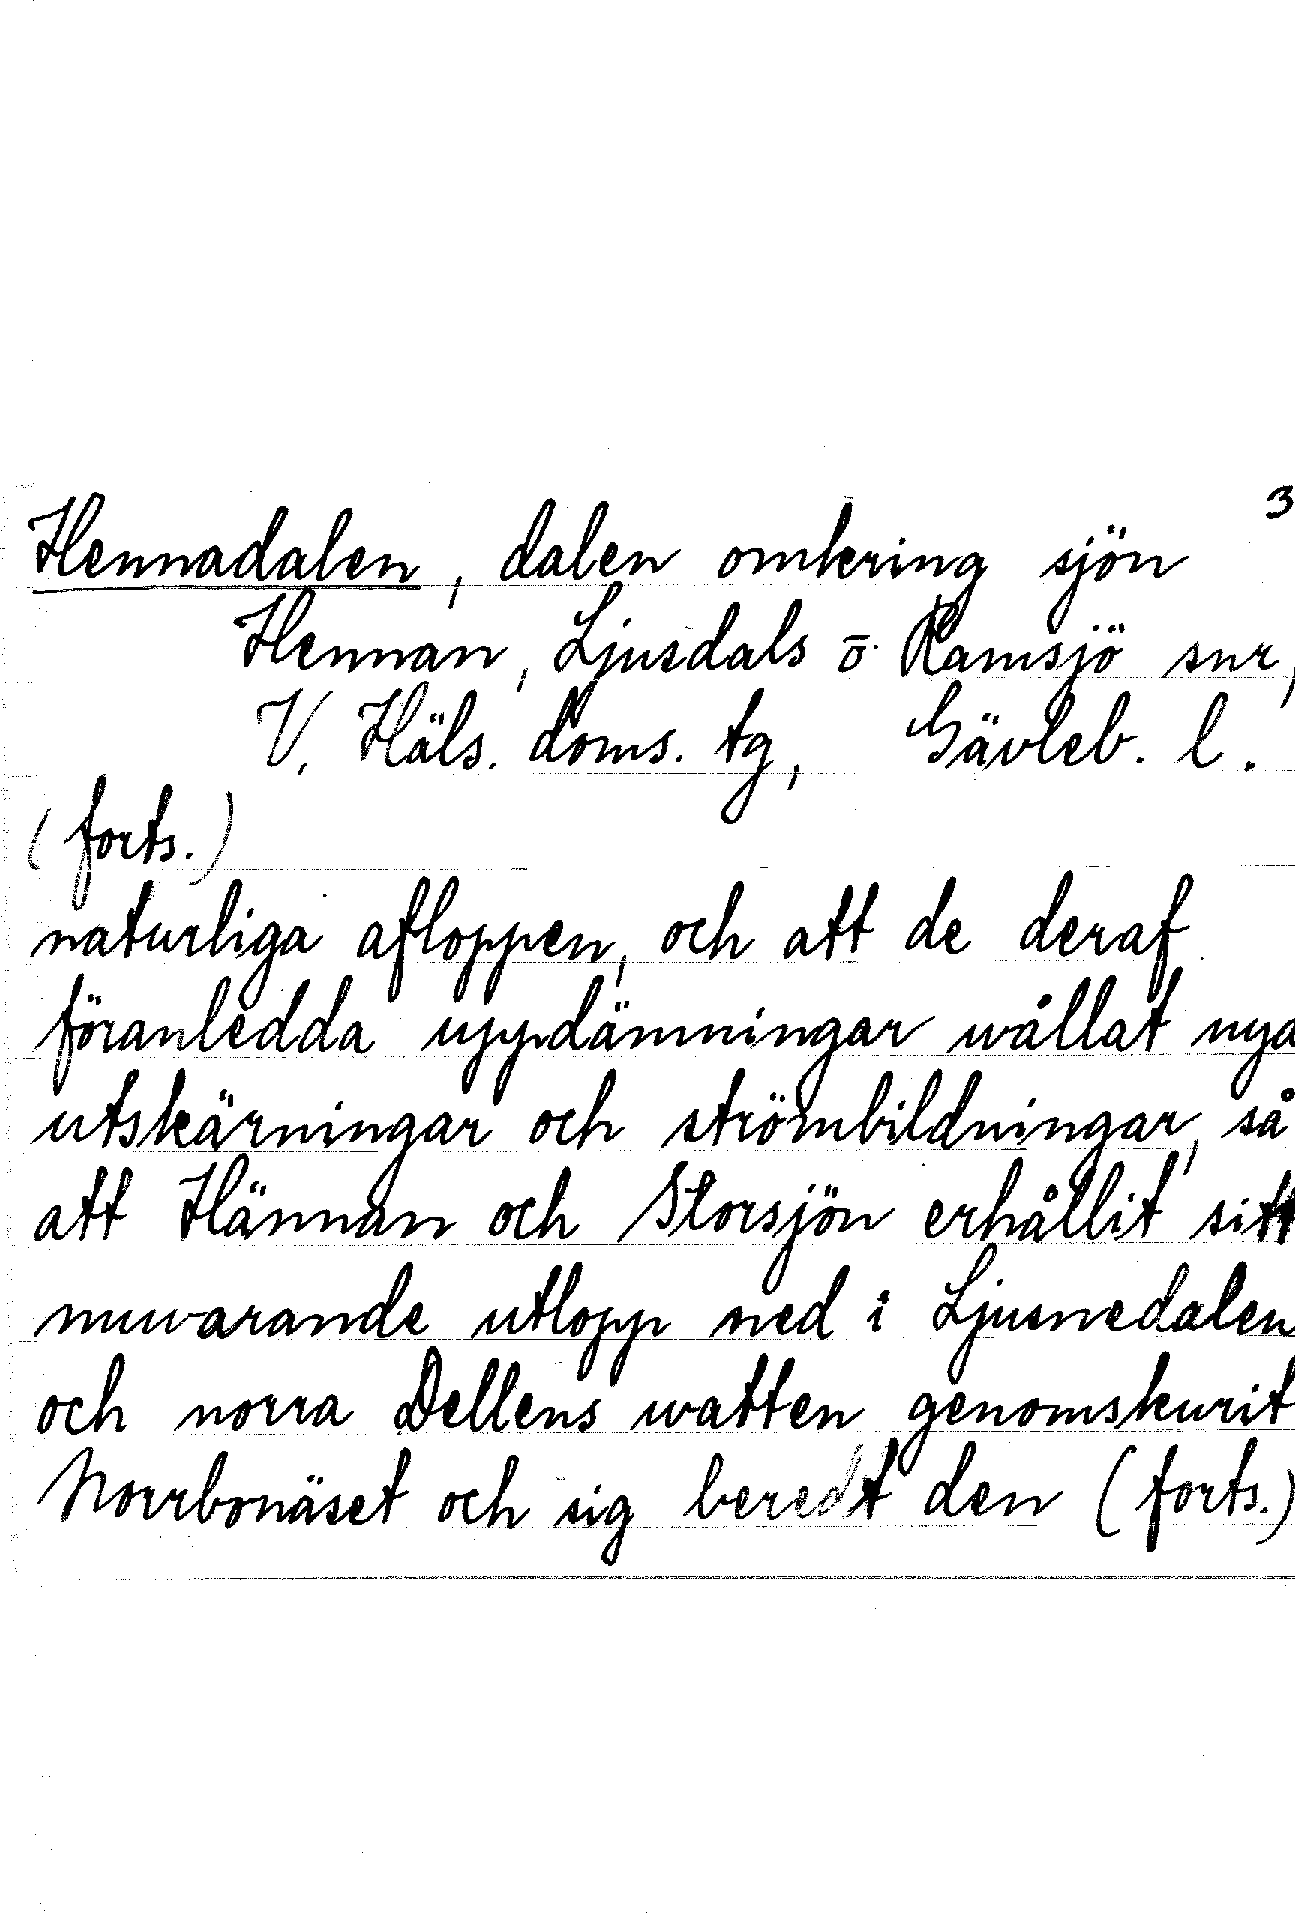 3
Hennadalen, dalen omkring sjön
Hennan, Ljusdals o. Ramsjö snr,
V. Häls. doms. tg, Gävleb. l.
(forts.)
naturliga afloppen, och att de deraf
föranledda uppdämningar wållat nya
utskärningar och strömbildningar, så
att Hännan och Storsjön erhållit sitt
nuwarande utlopp ned i Ljusnedalen
och norra Dellens watten genomskurit
Norrbonäset och sig beredt den (forts.)